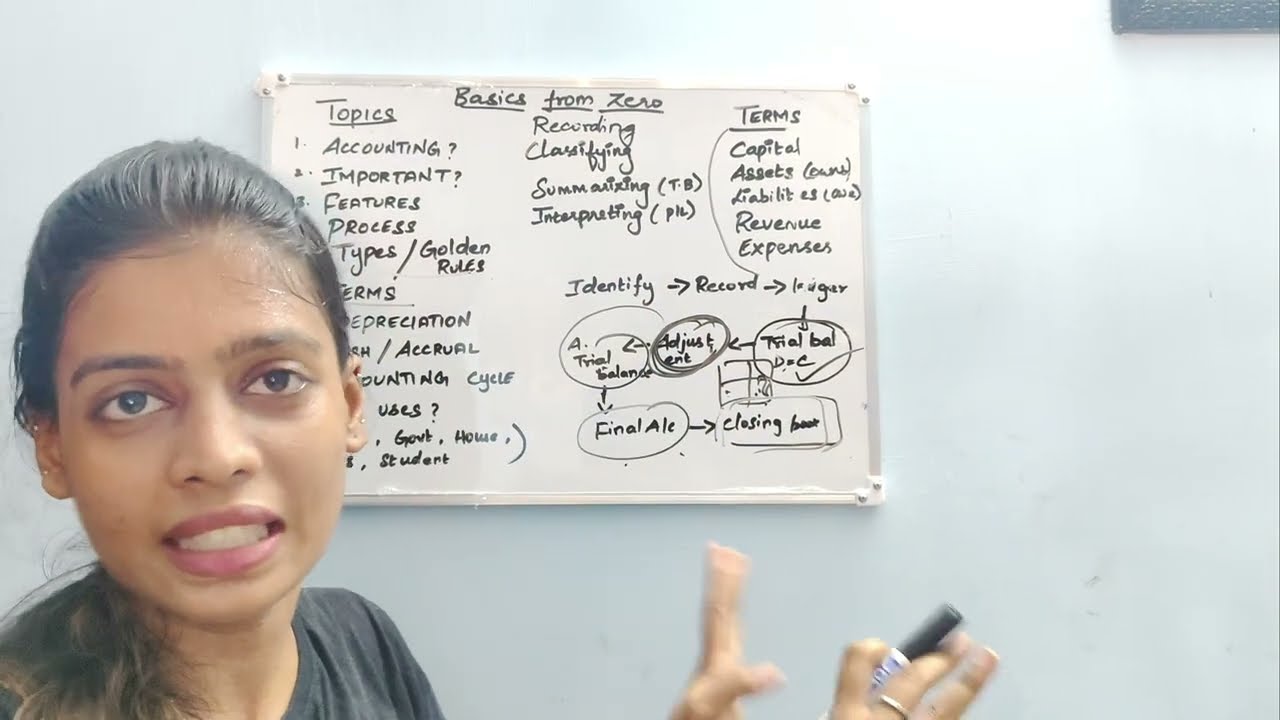 Basics from Zero
Topics
1. ACCOUNTING?
2. IMPORTANT?
3. FEATURES
PROCESS
Types / Golden
RULES
TERMS
DEPRECIATION
/ ACCRUAL
Cycle
uses?
, Govt, Home,)
, Student
Recording
Classifying
Summarizing (T.B)
Interpreting (P/L)
TERMS
Capital
Assets (owns)
Revenue
Expenses
Identify → Record →
Trial bal
D=C
Adjust
ent
A.
Trial
balance
Final A/c → closing book